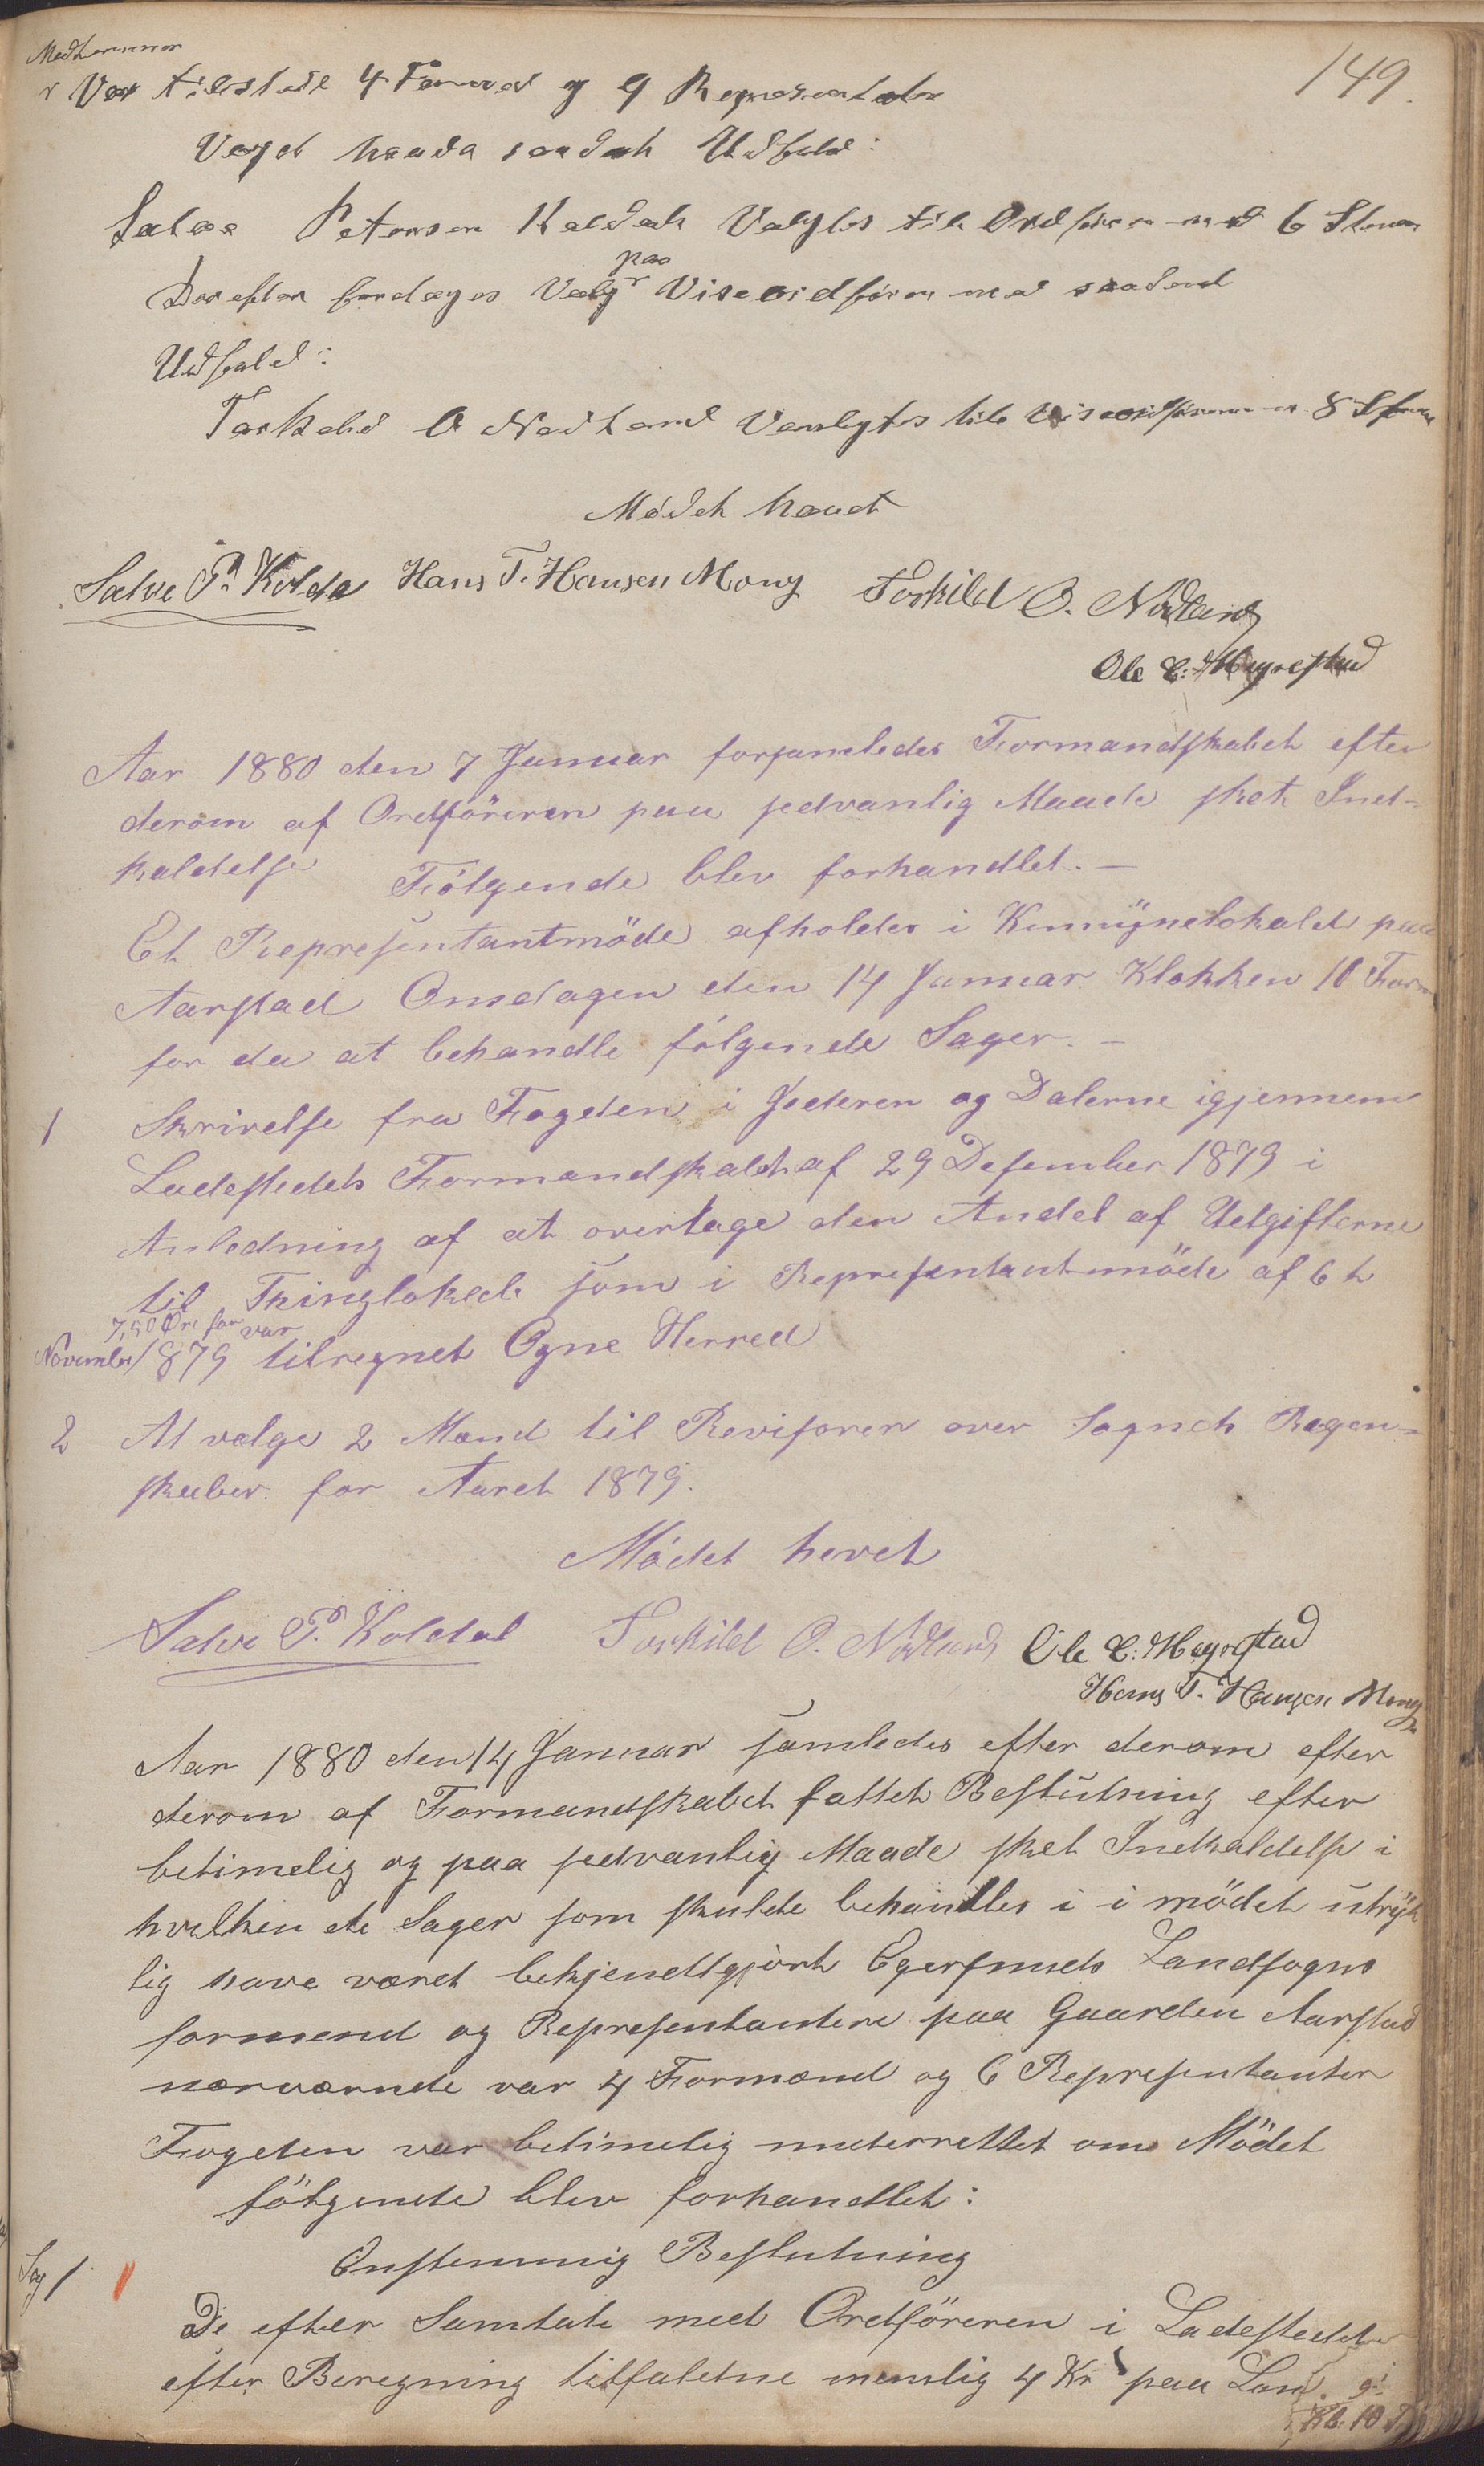 149.
Medlemmer
Var tilstede 4 Formend og 9 Representeter
Valget havde saadat Udfald:
Salve Petersen Koldal Valgtes til Ordfører med 6 Stemer
paa
Derefter fordeges Valg Viseordfører med saadant
Udfald:
Torkeld O Nodland Vamlgtes til Viseordfører 8 Stemer
Mødet hævet
Salve P. Kolda Hans T. Hansen Mong Torkild O. Nodland
Ole E. Mageestad
Aar 1880 den 7 Januar forsamledes Formandskabet efter
derom af Ordföreren paa sedvanlig Maade sket Ind-
kaldelse Følgende blev forhandlet. —
Et Representantmöde afholdes i Komünelokalet paa
Aarstad Onsdagen den 14 Januar Klokken 10 Form
for da at behandle følgende Sager. —
1 Skrivelse fra Fogden i Jederen og Dalerne igjennem
Ladestedets Formandskab af 29 Desember 1879 i
Anledning af at overtage den Andel af Udgifterne
til Thinglokale som i Representantmöde af 6 t
7,50 Øre for var
November 1879 tilregnet Ogne Herred
2 At valge 2 Mend til Revisorer over Sognets Regen-
skaber for Aaret 1879.
Mödet hevet
Salve P. Koldal Torkild O. Nodland Ole E. Mageestad
Hans T. Hansen Mong
Aar 1880 den 14 Januar samledes efter derom efter
derom af Formandskabet fattet Beslutning efter
betimelig og paa sedvanlig Maade sket Indkaldelse i
hvilken de Sager som skulde behandles i i mödet utryk
lig have været bekjendtgjört Egersunds Landsogns
formend og Representantere paa Gaarden Aarstad
nærværnde var 4 Formænd og 6 Representanter
Fogden var betimelig underrettet om Mödet
fölgende blev forhandlet:
Enstemmig Beslutning
Sag 1
De efter Samtale med Ordföreren i Ladestedet
efter Beregning tilfaldne nemlig 4 Kr paa
Kl. 10